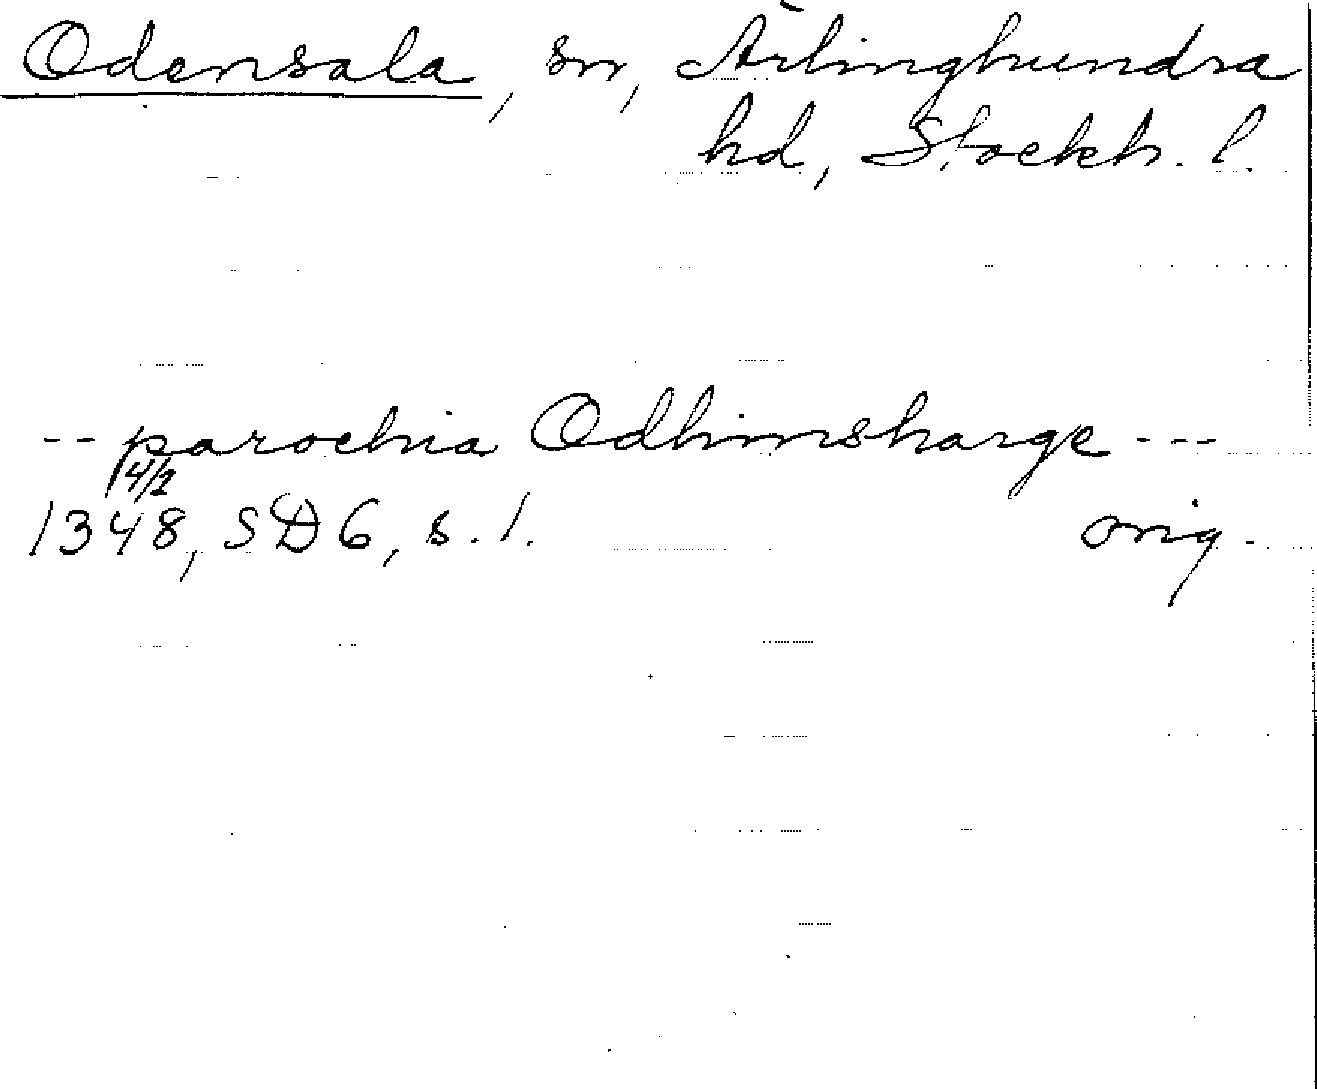 Odensala, sn, Ärlinghundra
hd, Stockh. l.
-- parochia Odhinsharge ---
4/2
1348, SD 6, s. 1. orig.